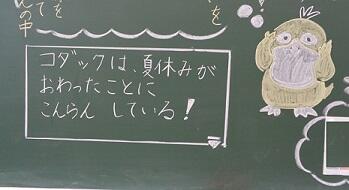 を
て
んの中
を
コダックは、夏休みが
おわったことに
こんらん している!